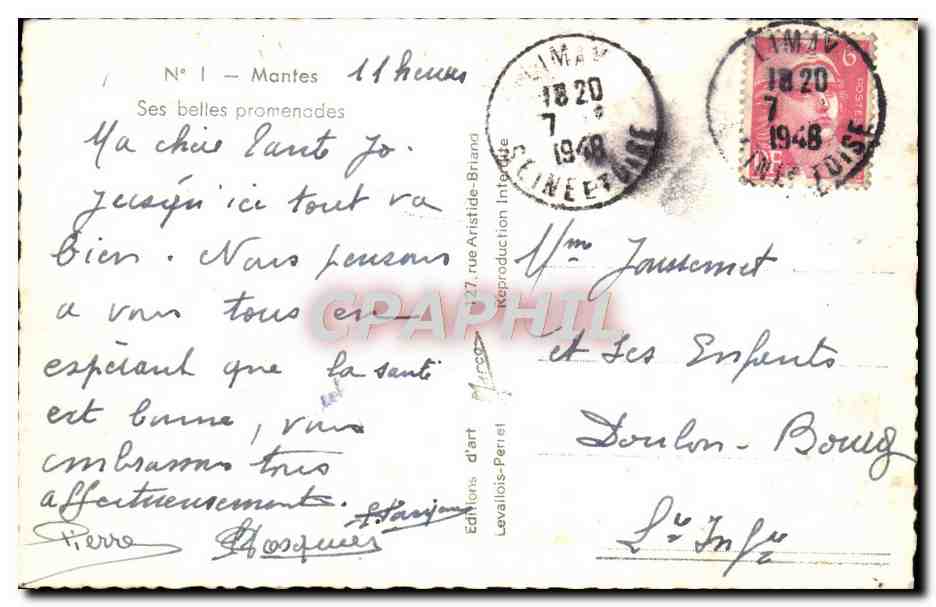 N° 1 — Mantes 11 heures
Ses belles promenades
Ma chère Tante Jo.
Jusqu'ici tout va
bien. Nous pensons
a vous tous en
espérant que la santé
est bonne, vous
embrassons tous
affectueusement.
Pierre
Editions d'art Marco 127, rue Aristide-Briand
Levallois-Perret Reproduction Interdite
LIMAY
18 20
7
1948
SEINE ET OISE
LIMAY
18 20
7
1948
SEINE ET OISE
6
POSTES
CPAPHIL
Mme Joussemet
et ses Enfants
Doulon-Bourg
Lre Infre